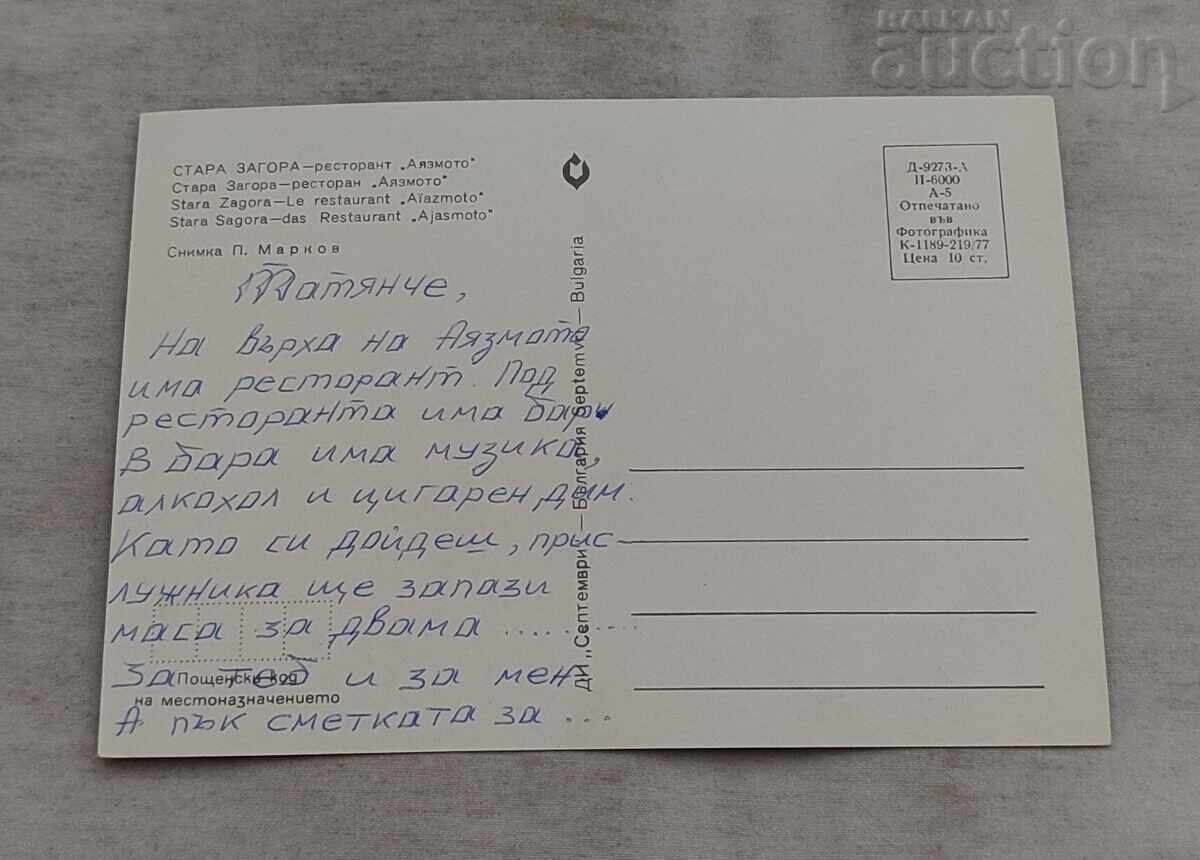 BALKAN
auction
СТАРА ЗАГОРА—ресторант „Аязмото“
Стара Загора—ресторан „Аязмото“
Stara Zagora—Le restaurant „Aïazmoto“
Stara Sagora—das Restaurant „Ajasmoto“
Снимка П. Марков
Д-9273-А
II-6000
А-5
Отпечатано
във
Фотографика
К-1189-219/77
Цена 10 ст.
Татянче,
На върха на Аязмото
има ресторант. Под
ресторанта има бар.
В бара има музика,
алкохол и цигарен дим.
Като си дойдеш, прис-
лужника ще запази
маса за двама ..........
За теб и за мен
А пък сметката за ...
Пощенски код
на местоназначението
ДИ „Септември“ — България Septemvri — Bulgaria